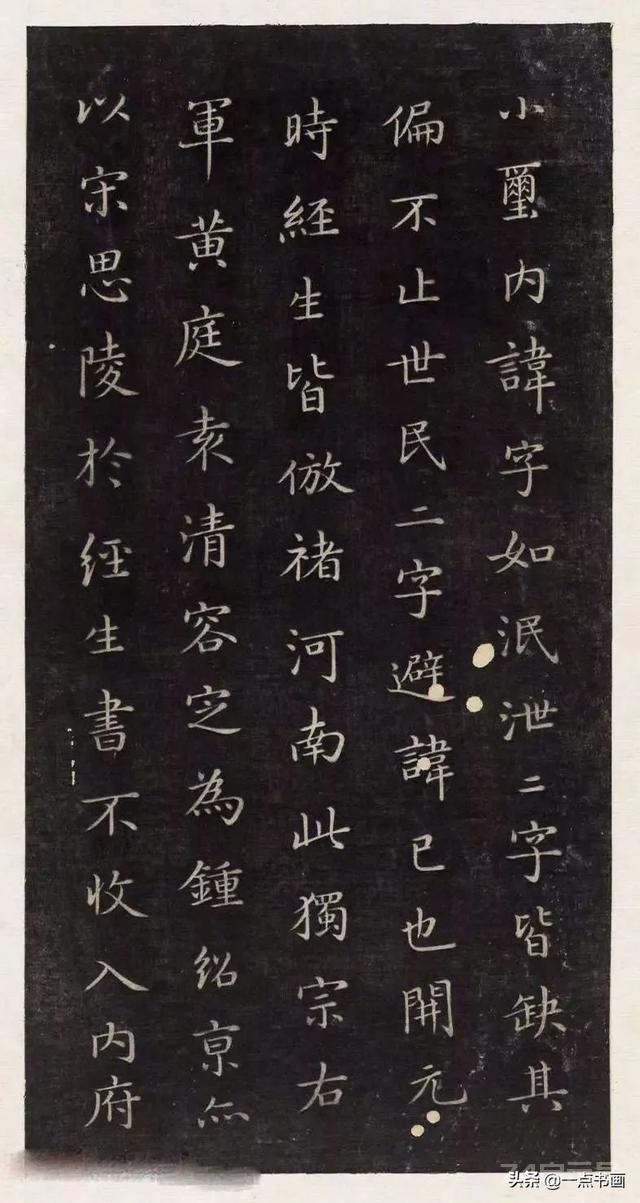 小璽内諱字如泯泄二字皆缺其
偏不止世民二字避諱已也開元
時經生皆倣褚河南此獨宗右
軍黄庭袁清容定為鍾紹京亦
以宋思陵於經生書不收入内府
头条 @一点书画